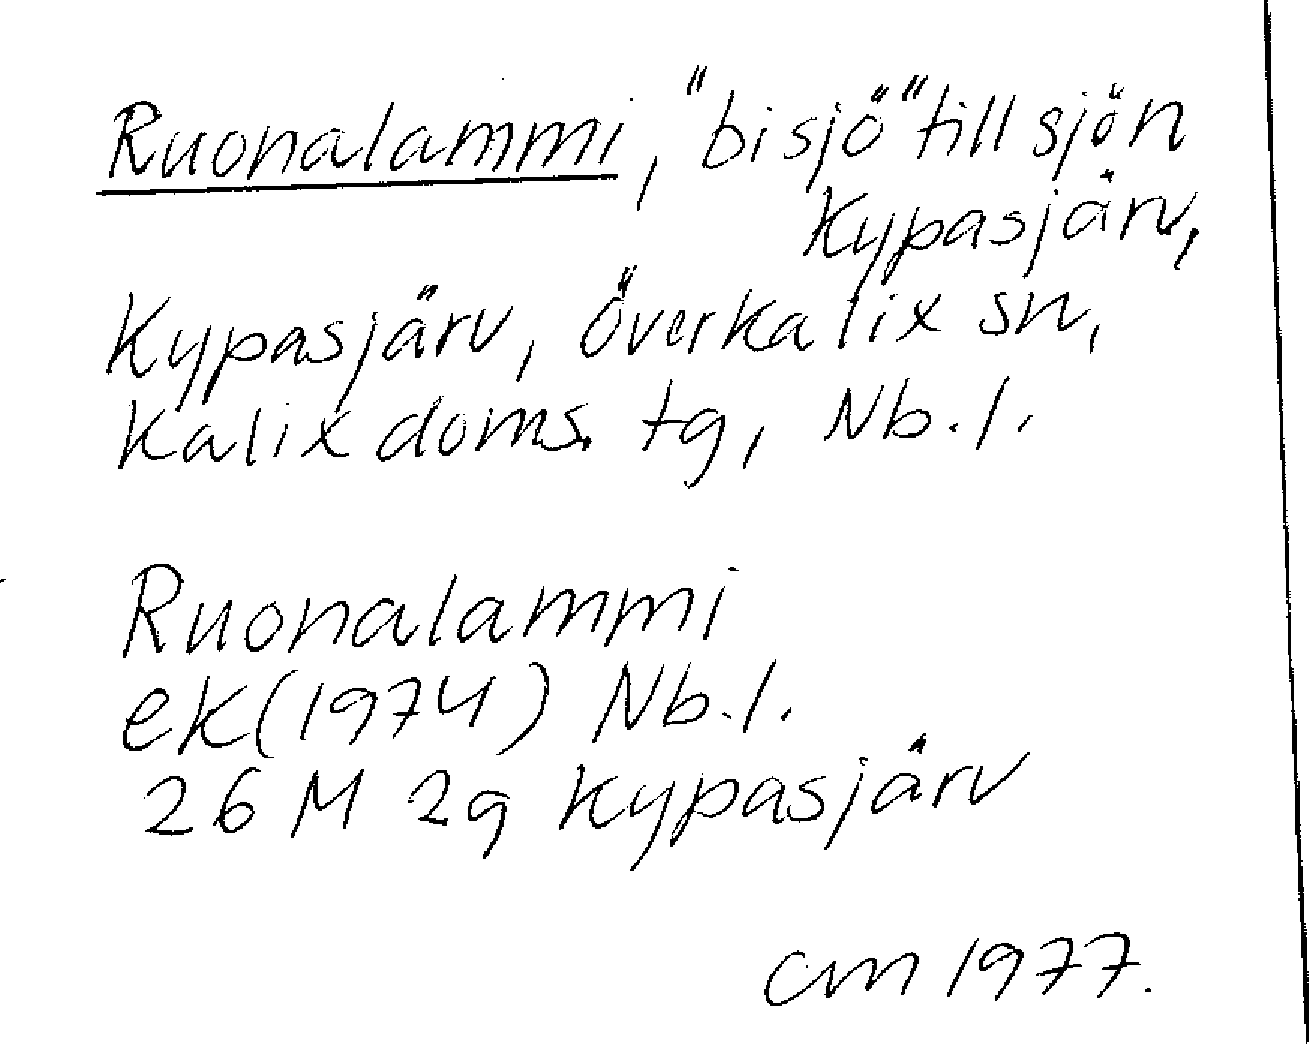 Ruonalammi, "bisjö" till sjön
Kypasjärv,
Kypasjärv, Överkalix sn,
Kalix doms. tg, Nb.l.
Ruonalammi
ek (1974) Nb.l.
26 M 2g Kypasjärv
cm 1977.